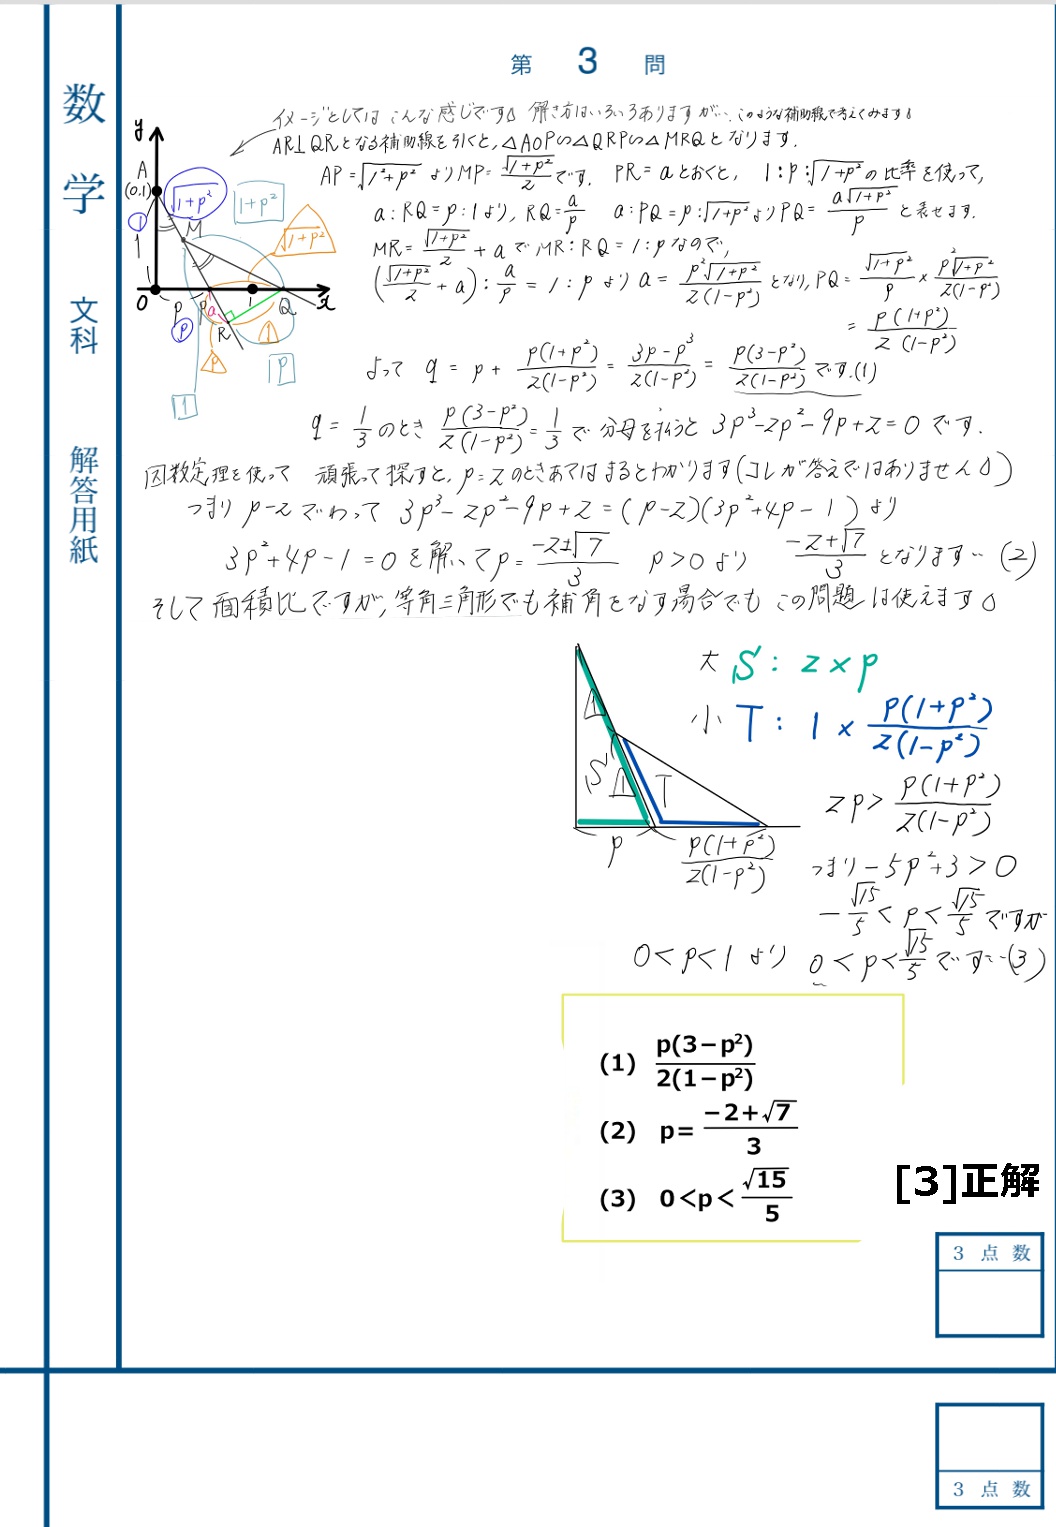 第 3 問
数学
文科
解答用紙
イメージとしてはこんな感じです。解き方はいろいろありますが… このような補助線で考えてみます。
AR⊥QRとなる補助線を引くと、△AOP∽△QRP∽△MRQとなります。
AP=√1²+p² よりMP=√1+p²/2です. PR=aとおくと, 1:p:√1+p²の比率を使って,
a:RQ=p:1より, RQ=a/p a:PQ=p:√1+p²よりPQ=a√1+p²/p と表せます.
MR=√1+p²/2+a で MR:RQ=1:pなので,
(√1+p²/2+a):a/p=1:p より a=p²√1+p²/2(1-p²) となり, PQ=√1+p²/p×p²√1+p²/2(1-p²)
=p(1+p²)/2(1-p²)
よって q=p+p(1+p²)/2(1-p²)=3p-p³/2(1-p²)=p(3-p²)/2(1-p²) です.(1)
q=1/3のとき p(3-p²)/2(1-p²)=1/3 で 分母を払うと 3p³-2p²-9p+2=0 です.
因数定理を使って 頑張って探すと, p=2のときあてはまるとわかります(コレが答えではありません。)
つまり p-2でわって 3p³-2p²-9p+2=(p-2)(3p²+4p-1) より
3p²+4p-1=0 を解いてp=-2±√7/3 p>0より -2+√7/3 となります… (2)
そして面積比ですが, 等角三角形でも補角をなす場合でも この問題は使えます。
y
A
(0.1)
1
√1+p²
1+p²
√1+p²
M
1
O
p
P
a
1
Q
x
p
R
1
p
p
1
大 S: 2×p
小 T: 1×p(1+p²)/2(1-p²)
S
T
1
1
p
p(1+p²)/2(1-p²)
2p>p(1+p²)/2(1-p²)
つまり-5p²+3>0
-√15/5<p<√15/5ですが
0<p<1より 0<p<√15/5です…(3)
(1) p(3−p²)/2(1−p²)
(2) p=−2+√7/3
(3) 0<p<√15/5
[3]正解
3 点 数
3 点 数